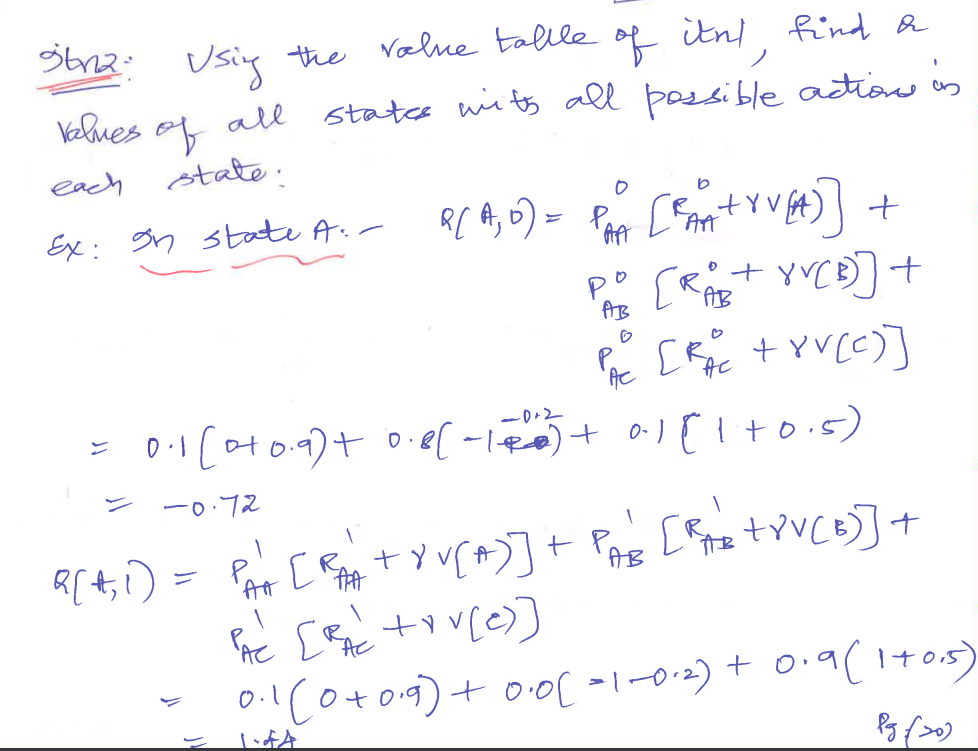 Itn2: Using the value table of itn1, find Q
Values of all states with all possible actions in
each state:
Ex: In state A:- Q(A,0) = P⁰_AA [R⁰_AA + γV(A)] +
P⁰_AB [R⁰_AB + γV(B)] +
P⁰_AC [R⁰_AC + γV(C)]
= 0.1(0+0.9) + 0.8(-1-0.2) + 0.1[1+0.5)
= -0.72
Q(A,1) = P¹_AA [R¹_AA + γV(A)] + P¹_AB [R¹_AB + γV(B)] +
P¹_AC [R¹_AC + γV(C)]
= 0.1(0+0.9) + 0.0(-1-0.2) + 0.9(1+0.5)
= 1.44
Pg (20)